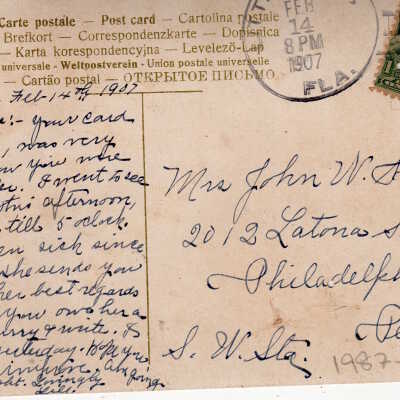 Carte postale – Post card – Cartolina postale
Brefkort – Correspondenzkarte – Dopisnica
Karta korespondencyjna – Levelező-Lap
universale - Weltpostverein - Union postale universelle
Cartão postal – ОТКРЫТОЕ ПИСЬМО
FEB
14
8 PM
1907
FLA.
Feb 14th 1907
:- your card
, was very
you were
. I went to see
afternoon,
till 5 oclock.
sick since
she sends you
her best regards
you owe her a
hurry & write. I
yesterday. Hope you
improve. Am going
Lovingly
Mrs John W. S
2012 Latona S
Philadelph
Pe
S. W. Sta.
1987-